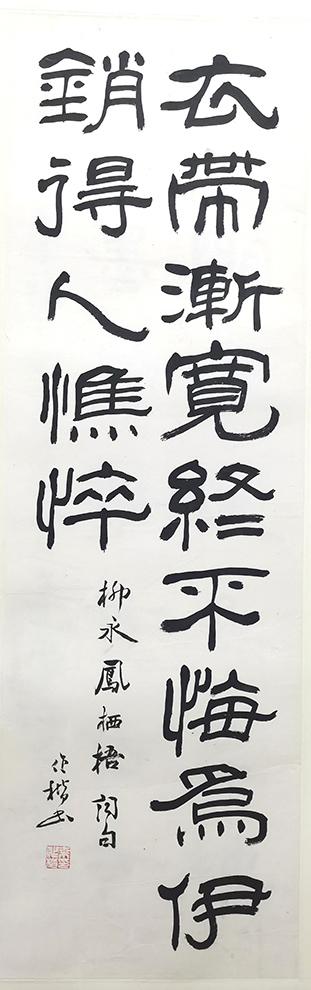 衣帶漸寬終不悔爲伊
銷得人憔悴
柳永鳳栖梧詞句
楷书